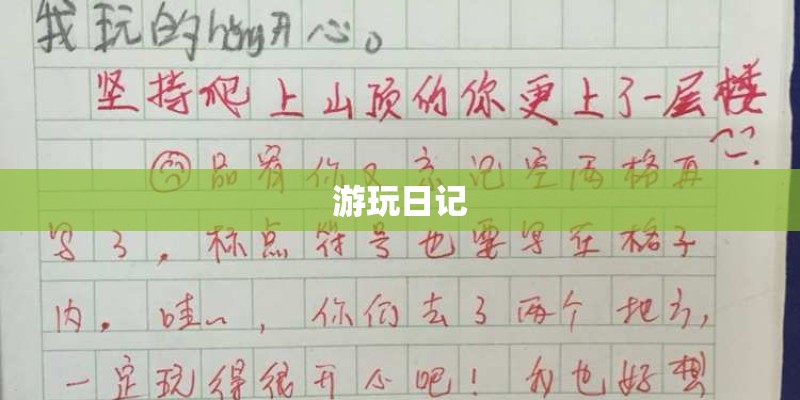 我玩的hěng开心。
坚持爬上山顶的你更上了一层楼
品宥你又忘记空两格再
游玩日记
写了，标点符号也要写在格子
内。哇~，你们去了两个地方，
一定玩得很开心吧！我也好想